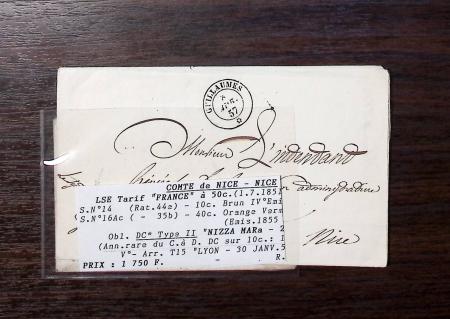 GUILLAUMES
57
Monsieur L'intendant
administrative
Nice
COMTE de NICE - NICE
LSE Tarif "FRANCE" à 50c.(1.7.185
S.N°14 (Rat.44e) - 10c. Brun IV°Emi
S.N°16Ac ( - 35b) - 40c. Orange Verm
(Emis.1855
Obl. DC* Type II "NIZZA MARa - 2
(Ann.rare du C.à D. DC sur 10c.: 1
V°- Arr. T15 "LYON - 30 JANV.5
R.
PRIX : 1 750 F.